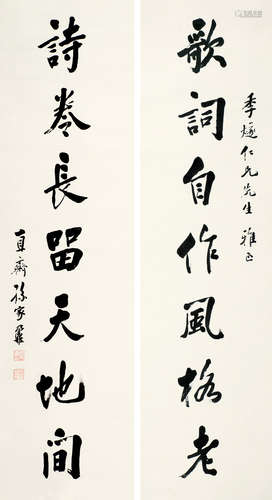 歌詞自作風格老
季遂仁兄先生雅正
詩卷長留天地間
直齋孫家鼐